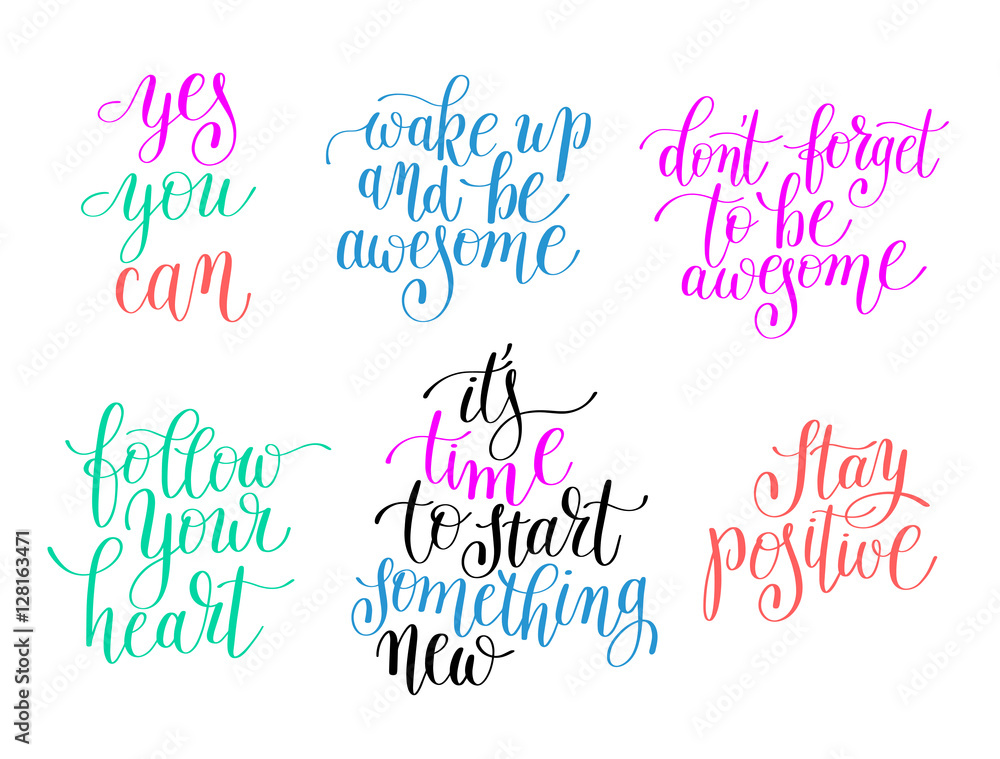 yes
you
can
wake up
and be
awesome
don't forget
to be
awesome
follow
your
heart
it's
time
to start
something
new
stay
positive
Adobe Stock | #128163471